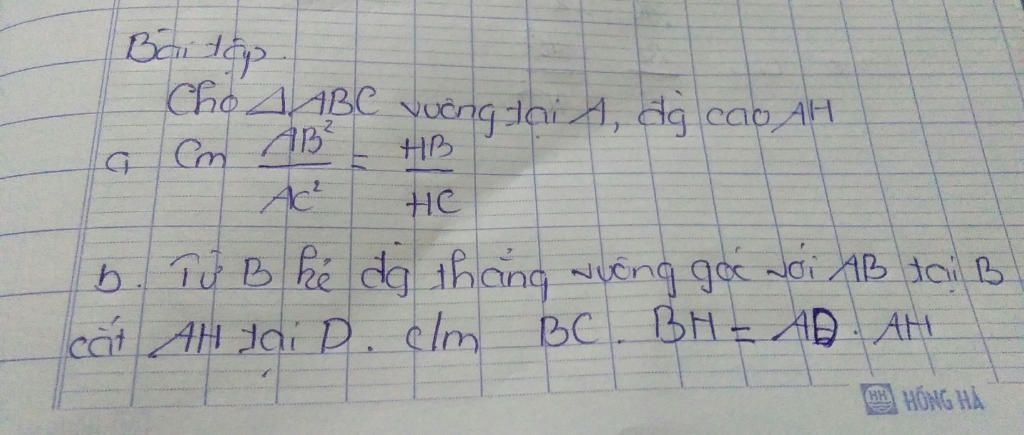 Bài tập.
Cho △ABC vuông tại A, đg cao AH
a Cm AB²/AC² = HB/HC
b. Từ B kẻ đg thẳng vuông góc với AB tại B
cắt AH tại D. c/m BC. BH = AD. AH
HH HỒNG HÀ